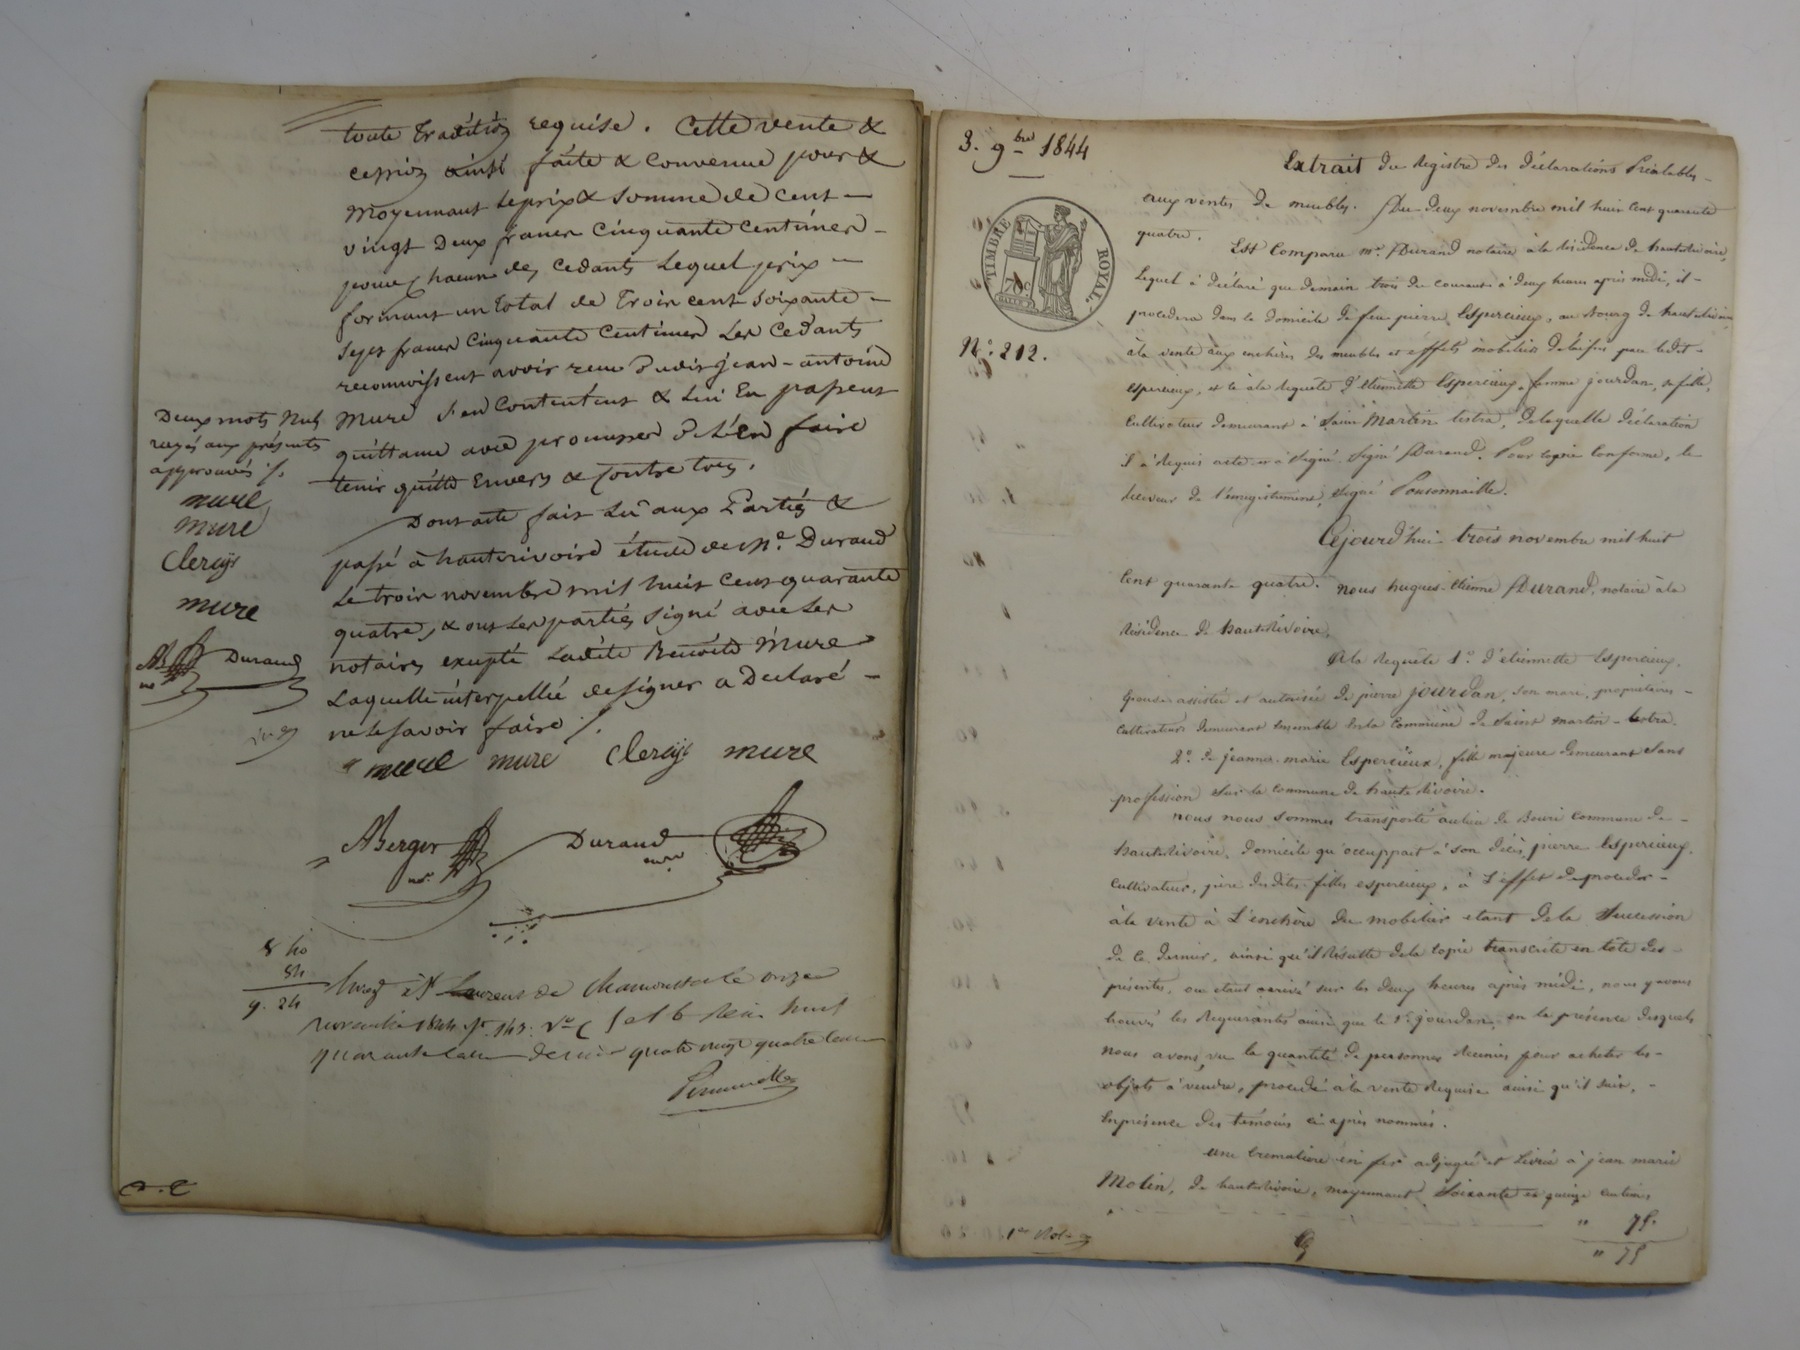 toute tradition requise. Cette vente &
cession ainsi faite & convenue pour &
moyennant le prix & somme de cent
vingt Deux francs Cinquante Centimes
pour Chacun des Cedants Lequel prix
formant un total de Trois cent soixante
Sept francs Cinquante Centimes Les Cedants
reconnoissent avoir recu dudit jean-antoine
Mure s'en Contentent & Lui En passent
quittance avec promesse de L'en faire
tenir quitte Envers & Contre tous.
Dont acte fait Lu aux Parties &
passé à hauterivoire étude de Me. Durand
Le trois novembre mil huit Cent quarante
quatre, & ont Les parties signé avec Les
notaires excepté Ladite Benoite Mure
Laquelle interpellée de signer a Declaré
ne le savoir faire /.
mure mure Clergs mure
ABerger Durand
Deux mots Nuls
rayés aux présents
approuvés /.
mure
mure
Clergs
mure
AB Durand
8 40
84
9. 24
Enreg. à St Laurens de Chamousset le onze
novembre 1844 fo. 143. Vo. C 5 et 6 Reçu huit
francs quarante cent decime quatre vingt quatre cent
3. 9bre 1844
TIMBRE ROYAL.
70c
No. 212.
Extrait du Registre des déclarations Préalables
aux ventes de meubles. Du deux novembre mil huit cent quarante
quatre.
Est Comparu me. Durand notaire à la résidence de hauterivoire,
Lequel à déclaré que demain trois du courant à deux heures après midi, il
procedera dans le domicile de feu pierre Espercieux, au Bourg de hauterivoire
à la vente aux enchères des meubles et effets mobiliers delaissés par ledit
espercieux, et ce à la requête d'etiennette Espercieux, femme jourdan, sa fille,
Cultivateur demeurant à Saint Martin lestra, de laquelle déclaration
il à requis acte et à signé. Signé Durand. Pour copie Conforme, le
receveur de l'enregistrement, signé Ponsonnaille.
Cejourd'hui trois novembre mil huit
Cent quarante quatre. nous hugues etienne Durand, notaire à la
Résidence de hauterivoire,
A la requête 1o. d'etiennette Espercieux,
épouse assistée et autorisée de pierre jourdan, son mari, propriétaires
cultivateurs demeurant ensemble en la Commune de Saint martin-Lestra.
2o. de jeanne marie Espercieux, fille majeure demeurant sans
profession sur la commune de hauterivoire.
nous nous sommes transporté au lieu de Bouri Commune de
hauterivoire, domicile qu'occuppait à son décès pierre Espercieux,
Cultivateur, père desdites filles espercieux, à L'effet de proceder
à la vente à L'enchère du mobilier etant de la Succession
de ce dernier, ainsi qu'il Résulte de la Copie transcrite en tête des
présentes, ou etant arrivé sur les deux heures après midi, nous y avons
trouvé les Requerantes ainsi que le sr. jourdan, en la présence desquels
nous avons, vu la quantité de personnes Reunies pour acheter les
objets à vendre, procedé à la vente Requise ainsi qu'il suit,
Enprésence des témoins ci après nommés.
une Cremaliere en fer adjugée et livrée à jean marie
Molin, de hauterivoire, moyennant Soixante et quinze centimes,
" 75.
1er Rôle
" 75